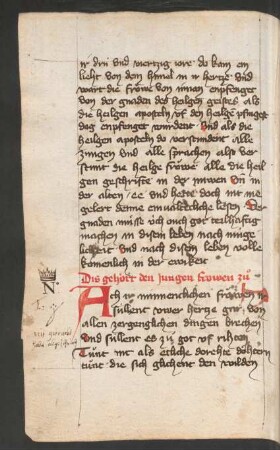 ir drú vnd viertzig iore do kam ein
lieht von dem himel in ir hertze vnd
wart die frowe von innan enpfenget
von der gnaden des heilgen geistes als
die heilgen aposteln vf den heilge pfingst
dag enpfenget wurdent vnd als die
heilgen aposteln do verstundent alle
zungen vnd alle sprachen also ver
stunt die heilge frowe alle die heil
gen geschrifte in der nuwen vn in
der alten .e. vnd hette doch nit me
gelert denne einualtecliche lesen der
gnaden müsse vch ouch got teilhaftig
machen in disem leben nach múge
licheit vnd nach disem leben volle
komenlich in der ewikeit
Dis gehört den jungen frowen zu
Ach ir minnenclichen frowen ir
sullent vwer hertze gar von
allen zergenglichen dingen brechen
vnd sullent es zu got vf rihten
Tunt nit als etliche dorehte döhtern
tunt die sich glichent den wilden
N.